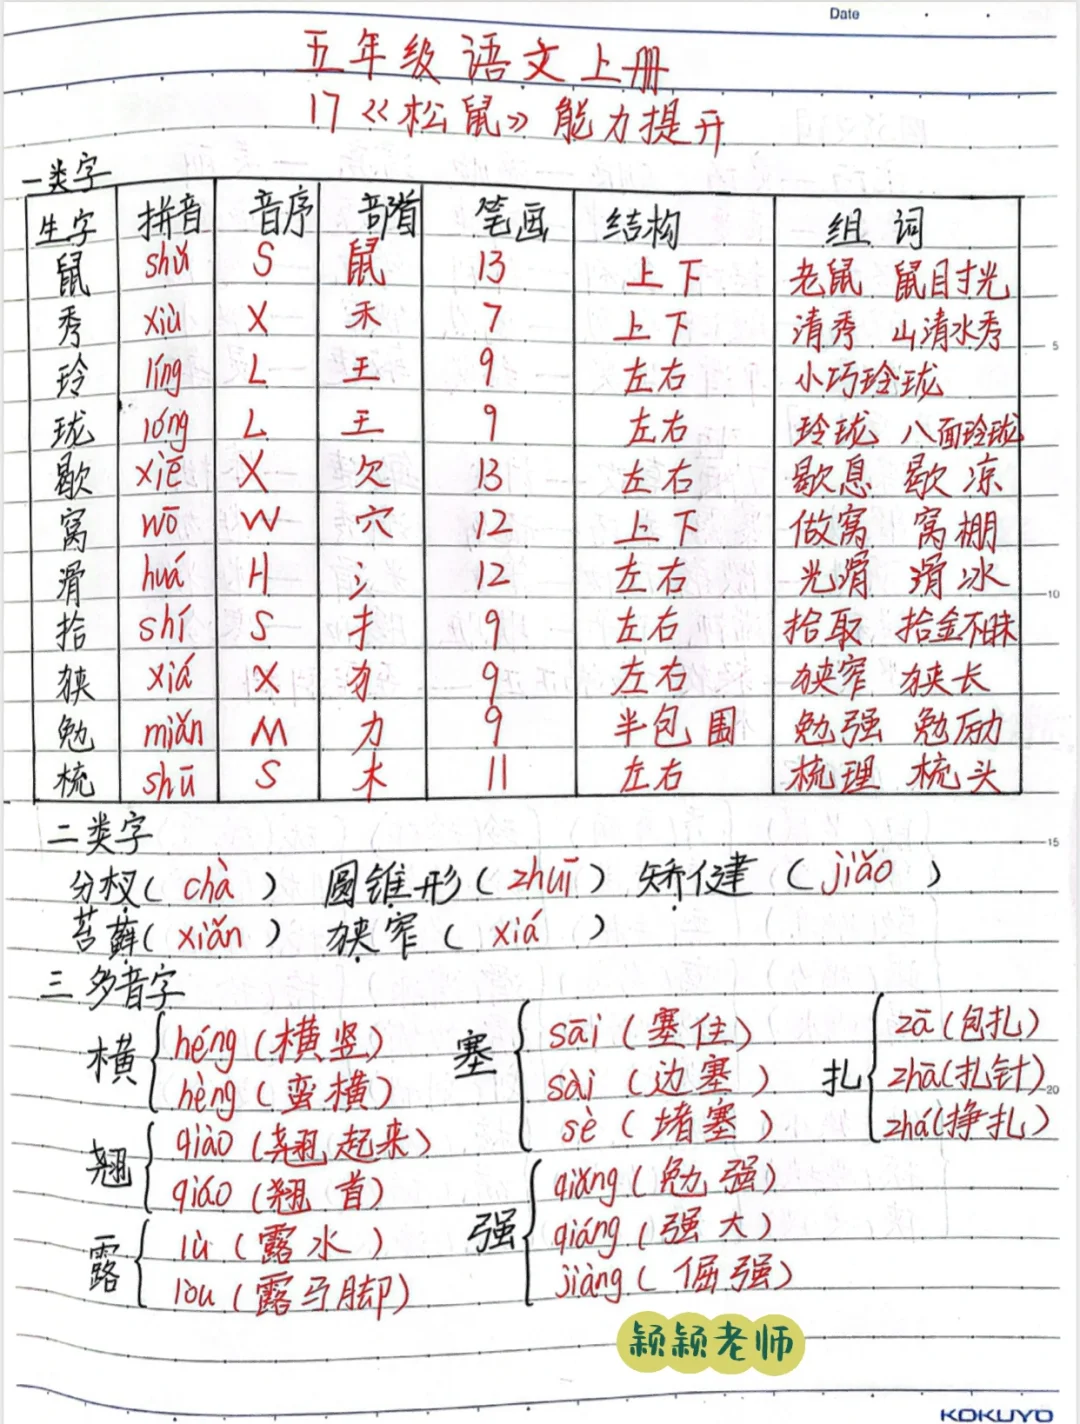 Date
五年级语文上册
17《松鼠》能力提升
一类字
生字 拼音 音序 部首 笔画 结构 组词
鼠 shǔ S 鼠 13 上下 老鼠 鼠目寸光
秀 xiù X 禾 7 上下 清秀 山清水秀
玲 líng L 王 9 左右 小巧玲珑
珑 lóng L 王 9 左右 玲珑 八面玲珑
歇 xiē X 欠 13 左右 歇息 歇凉
窝 wō W 穴 12 上下 做窝 窝棚
滑 huá H 氵 12 左右 光滑 滑冰
拾 shí S 扌 9 左右 拾取 拾金不昧
狭 xiá X 犭 9 左右 狭窄 狭长
勉 miǎn M 力 9 半包围 勉强 勉励
梳 shū S 木 11 左右 梳理 梳头
二类字
分杈(chà) 圆锥形(zhuī) 矫健(jiǎo)
苔藓(xiǎn) 狭窄(xiá)
三 多音字
横 héng(横竖) hèng(蛮横)
塞 sāi(塞住) sài(边塞) sè(堵塞)
扎 zā(包扎) zhā(扎针) zhá(挣扎)
翘 qiào(翘起来) qiáo(翘首)
强 qiǎng(勉强) qiáng(强大) jiàng(倔强)
露 lù(露水) lòu(露马脚)
颖颖老师
KOKUYO
5
10
15
20